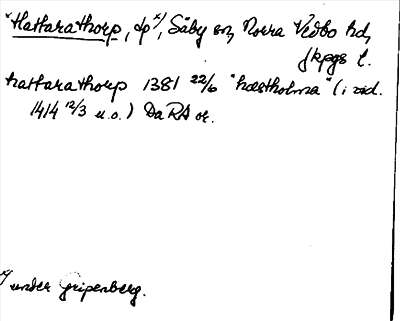 *Hattarathorp, dp x), Säby sn, Norra Vedbo hd,
Jkpgs l.
hattarathorp 1381 22/6 "hæstholma" (i vid.
1414 12/3 u.o.) Da RA or.
x) under Gripenberg.